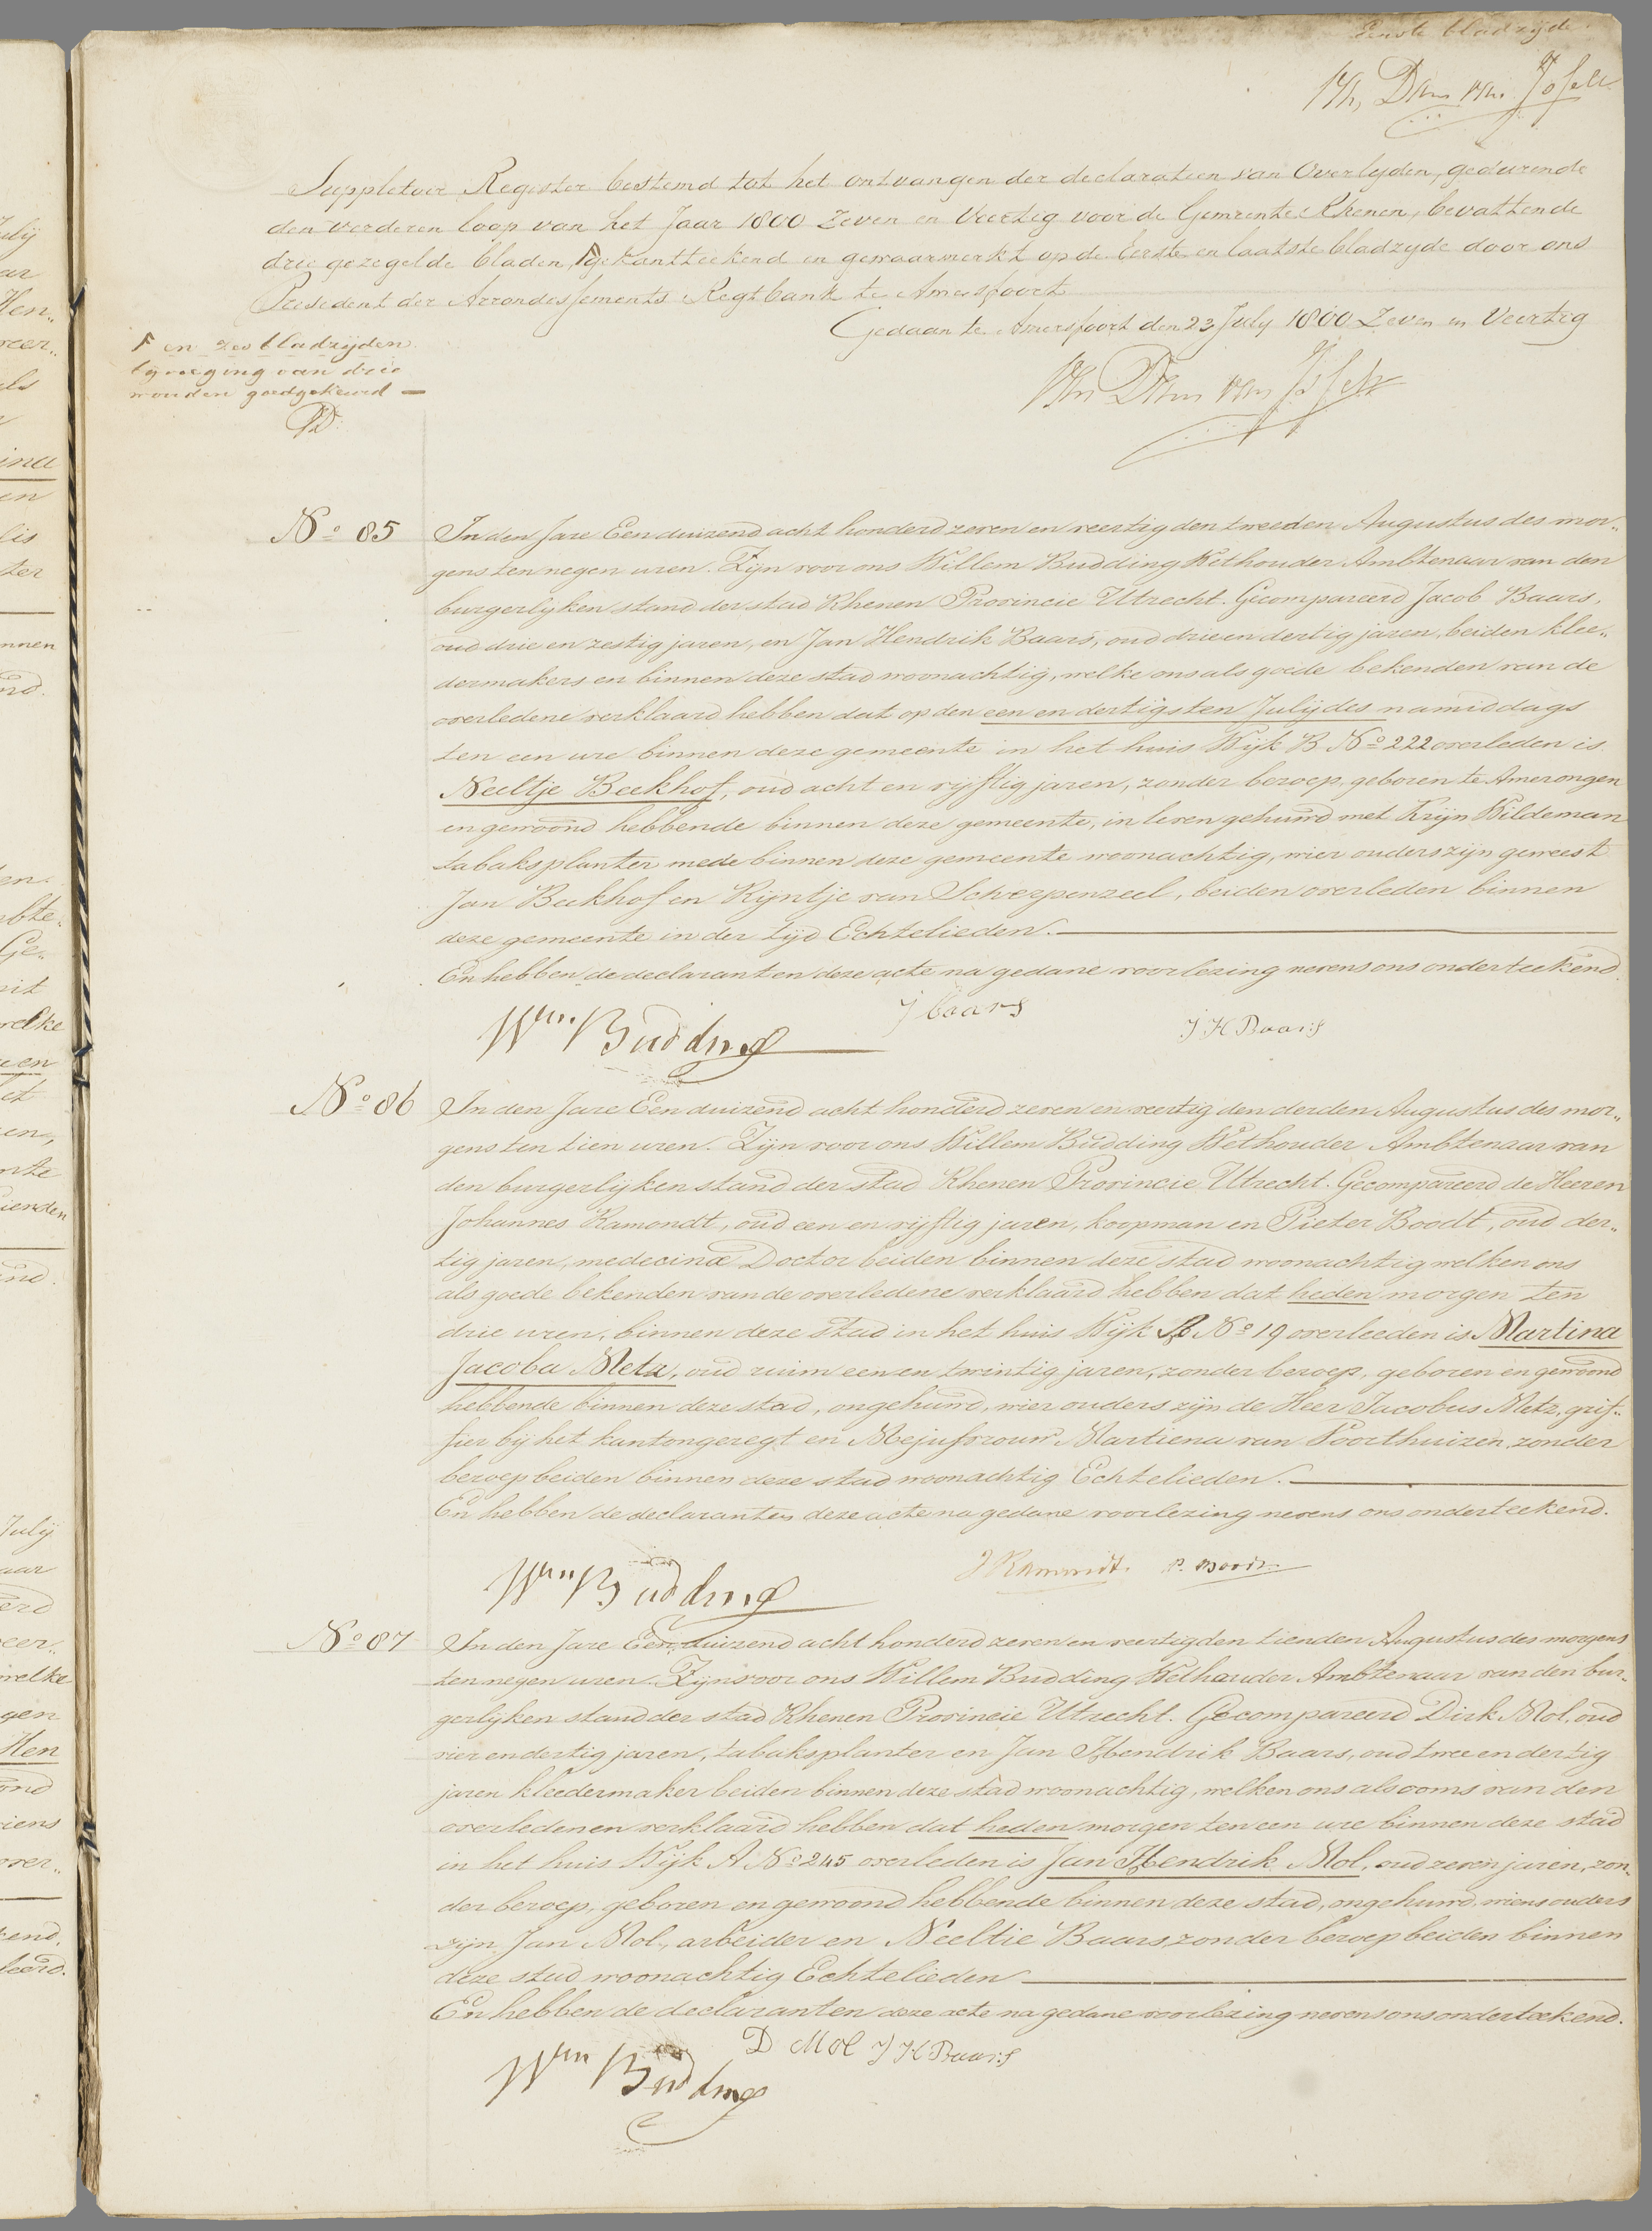 Eerste bladzijde
Suppletoir Register bestemd tot het ontvangen der declaratien van Overlyden, gedurende
den verderen loop van het Jaar 1800 Zeven en Veertig voor de Gemeente Rhenen, bevattende
drie gezegelde bladen, gekantteekend en gewaarmerkt op de Eerste en laatste bladzyde door ons
President der Arrondissements Regtbank te Amersfoort
Gedaan te Amersfoort den 23 July 1800 Zeven en Veertig
en zes bladzijden
bijvoeging van drie
woorden goedgekeurd —
No 85
In den Jare Een duizend acht honderd zeven en veertig den tweeden Augustus des mor„
gens ten negen uren. Zijn voor ons Willem Budding Wethouder Ambtenaar van den
burgerlyken stand der stad Rhenen Provincie Utrecht. Gecompareerd Jacob Baars,
oud drie en zestig jaren, en Jan Hendrik Baars, oud drie en dertig jaren, beiden klee„
dermakers en binnen deze stad woonachtig, welke ons als goede bekenden van de
overledene verklaard hebben dat op den een en dertigsten Julij des namiddags
ten een ure binnen deze gemeente in het huis Wijk B No 222 overleden is
Neeltje Beekhof, oud acht en vyftig jaren, zonder beroep, geboren te Amerongen
en gewoond hebbende binnen deze gemeente, in leven gehuwd met Krijn Wildeman
tabaksplanter mede binnen deze gemeente woonachtig, wier ouders zijn geweest
Jan Beekhof en Rijntje van Scherpenzeel, beiden overleden binnen
deze gemeente in der tijd Echtelieden.
En hebben de declaranten deze acte na gedane voorlezing nevens ons onderteekend.
Wm Budding J Baars J H Baars
No 86
In den Jare Een duizend acht honderd zeven en veertig den derden Augustus des mor„
gens ten tien uren. Zijn voor ons Willem Budding Wethouder Ambtenaar van
den burgerlyken stand der stad Rhenen Provincie Utrecht. Gecompareerd de Heeren
Johannes Ramondt, oud een en vyftig jaren, koopman en Pieter Boodt, oud der„
tig jaren, medecinæ Doctor beiden binnen deze stad woonachtig welken ons
als goede bekenden van de overledene verklaard hebben dat heden morgen ten
drie uren, binnen deze stad in het huis Wijk No 19 overleeden is Martina
Jacoba Metz, oud ruim een en twintig jaren, zonder beroep, geboren en gewoond
hebbende binnen deze stad, ongehuwd, wier ouders zijn de Heer Jacobus Metz, grif„
fier bij het kantongeregt en Mejufvrouw Martiena van Poorthuizen, zonder
beroep beiden binnen deze stad woonachtig Echtelieden.
En hebben de declaranten deze acte na gedane voorlezing nevens ons onderteekend.
Wm Budding J Ramondt. P. Boodt
No 87
In den Jare Een duizend acht honderd zeven en veertig den tienden Augustus des morgens
ten negen uren. Zijn voor ons Willem Budding Wethouder Ambtenaar van den bur„
gerlyken stand der stad Rhenen Provincie Utrecht. Gecompareerd Dirk Mol, oud
vier en dertig jaren, tabaksplanter en Jan Hendrik Baars, oud twee en dertig
jaren kleedermaker beiden binnen deze stad woonachtig, welken ons als ooms van den
overledenen verklaard hebben dat heden morgen ten een ure binnen deze stad
in het huis Wijk A No 245 overleden is Jan Hendrik Mol, oud zeven jaren, zon„
der beroep, geboren en gewoond hebbende binnen deze stad, ongehuwd, wiens ouders
zijn Jan Mol, arbeider en Neeltie Baars zonder beroep beiden binnen
deze stad woonachtig Echtelieden
En hebben de declaranten deze acte na gedane voorlezing nevens ons onderteekend.
Wm Budding D Mol J H Baars